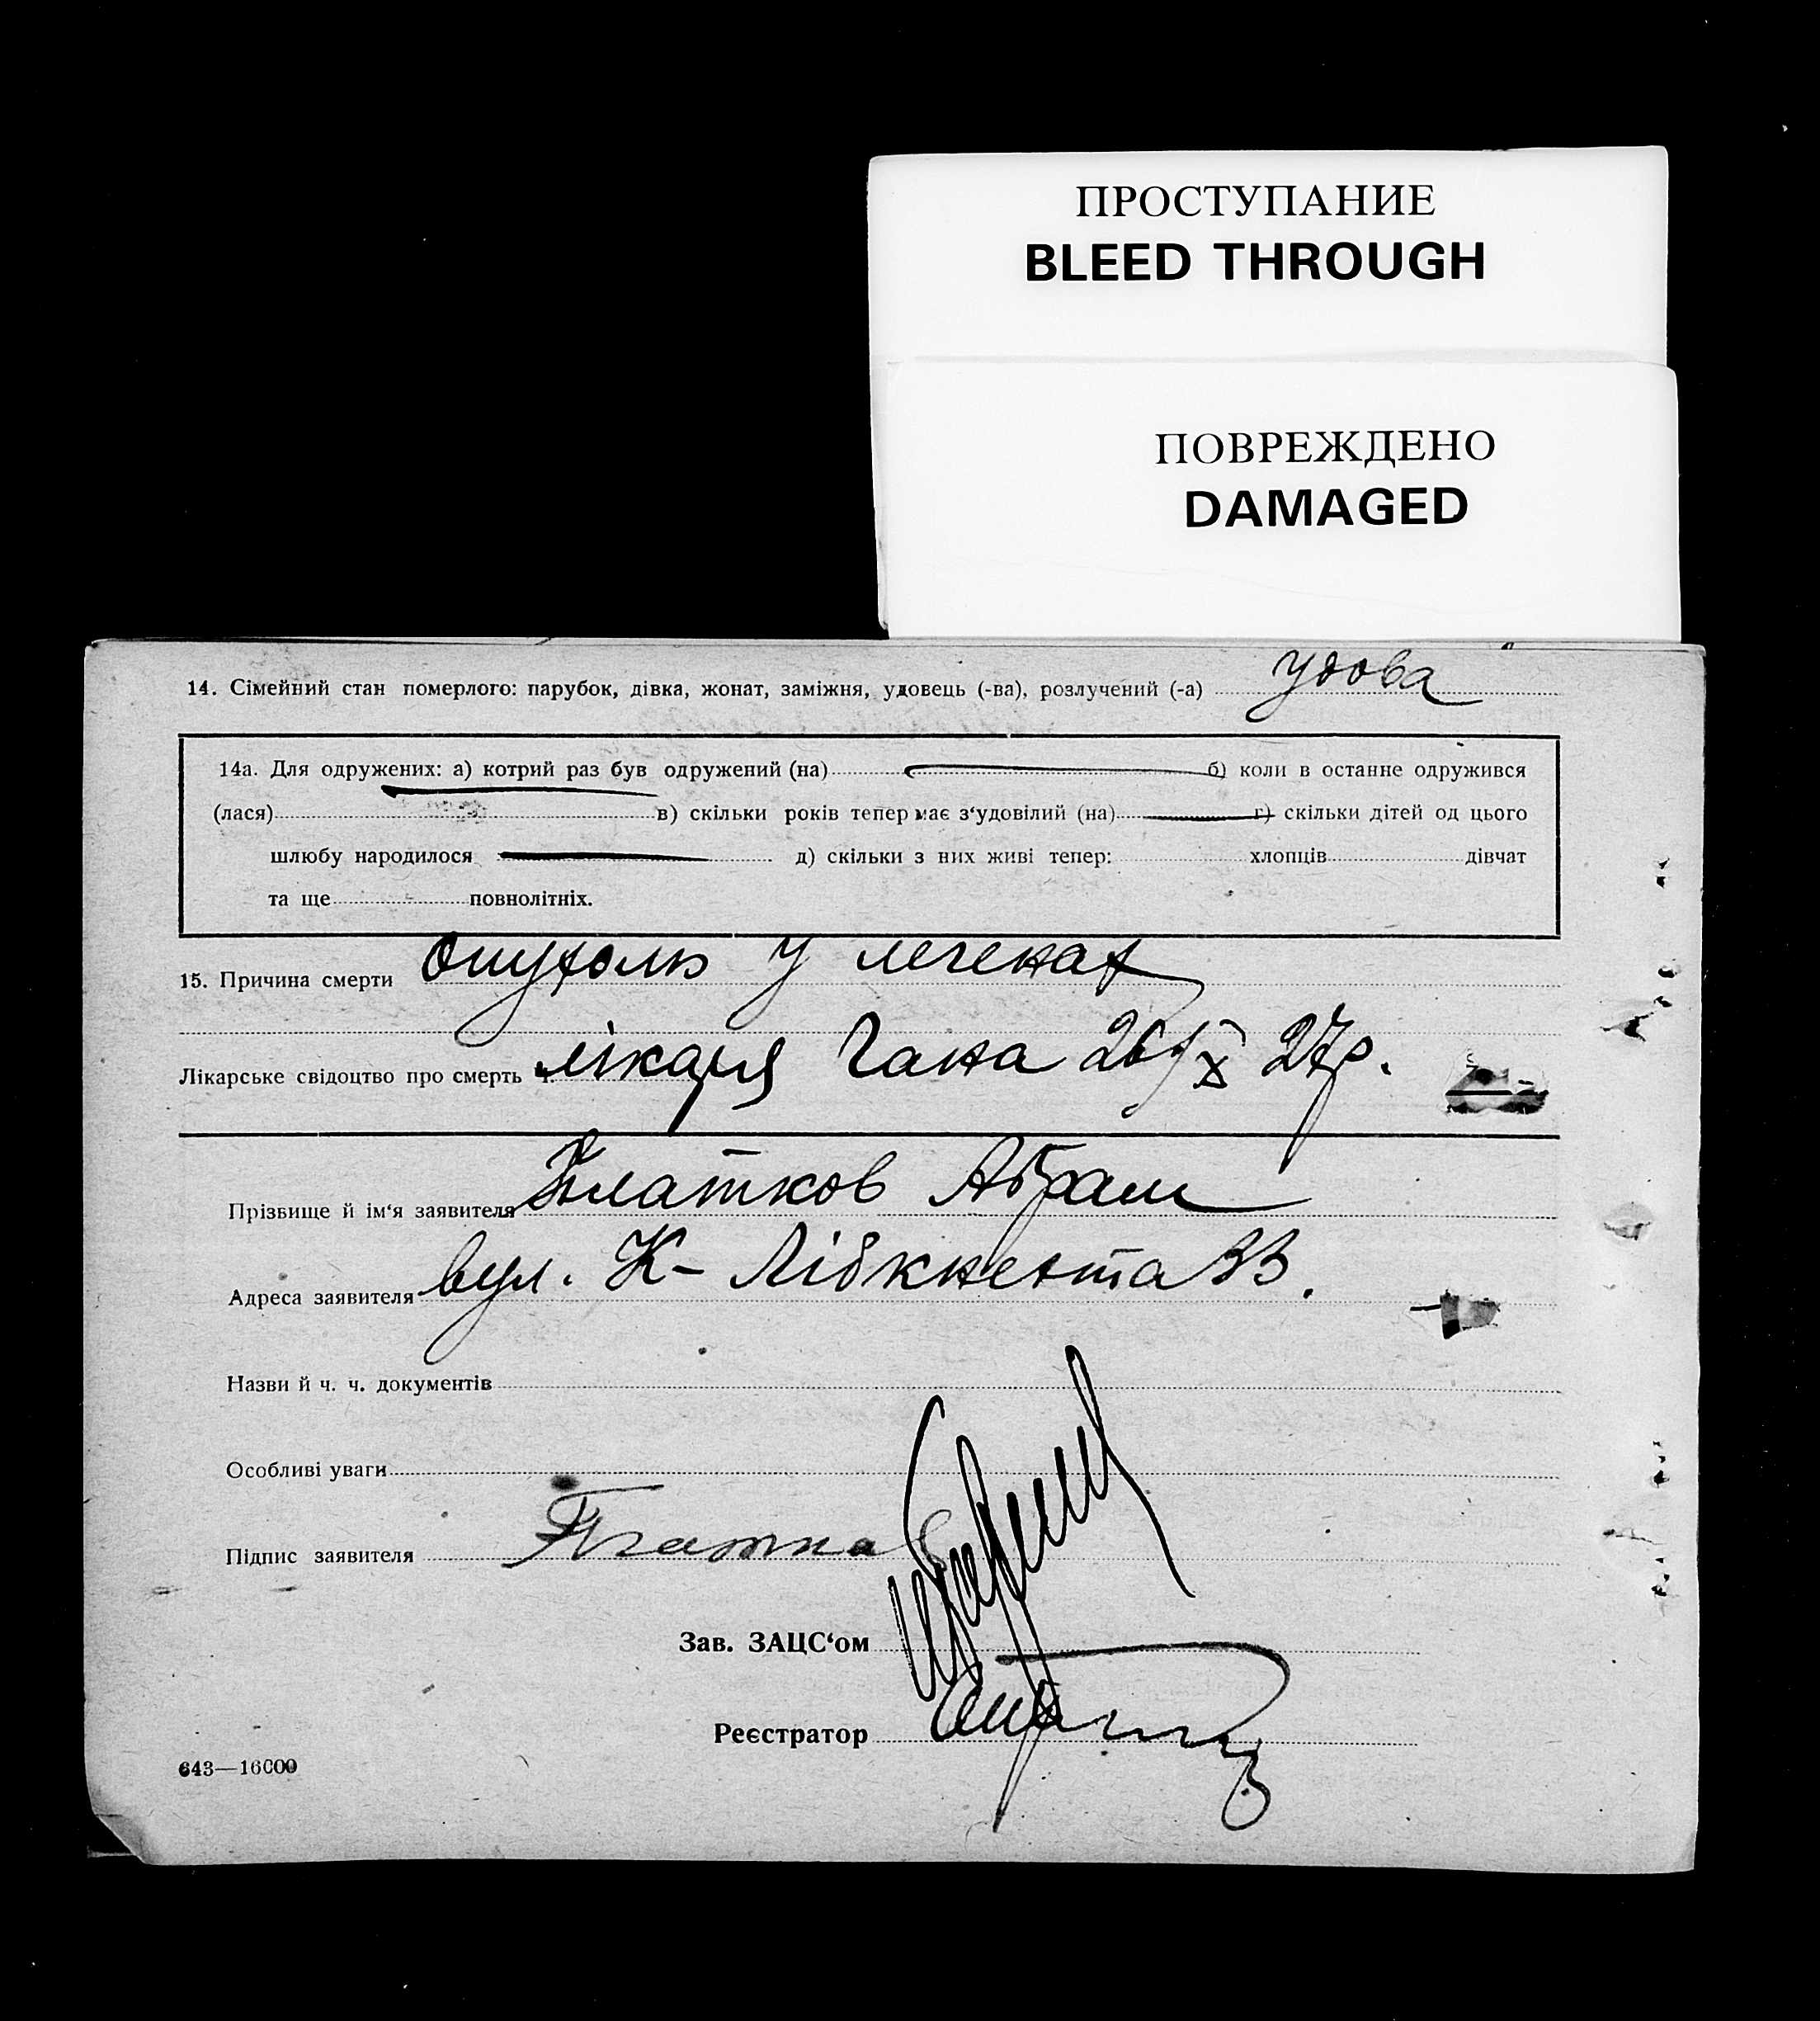 ПРОСТУПАНИЕ
BLEED THROUGH
ПОВРЕЖДЕНО
DAMAGED
14. Сімейний стан померлого: парубок, дівка, жонат, заміжня, удовець (-ва), розлучений (-а) удова
14а. Для одружених: а) котрий раз був одружений (на) б) коли в останне одружився
(лася) в) скільки років тепер має з‘удовілий (на) г) скільки дітей од цього
шлюбу народилося д) скільки з них живі тепер: хлопців дівчат
та ще повнолітніх.
15. Причина смерти Опухоль у легенах
Лікарське свідоцтво про смерть ч. лікаря Гана 26/X 27р.
Прізвище й ім‘я заявителя Златков Абрам
Адреса заявителя вул. К- Лібкнехта 33.
Назви й ч. ч. документів
Особливі уваги
Підпис заявителя
Зав. ЗАЦС‘ом
Реєстратор
643—16000